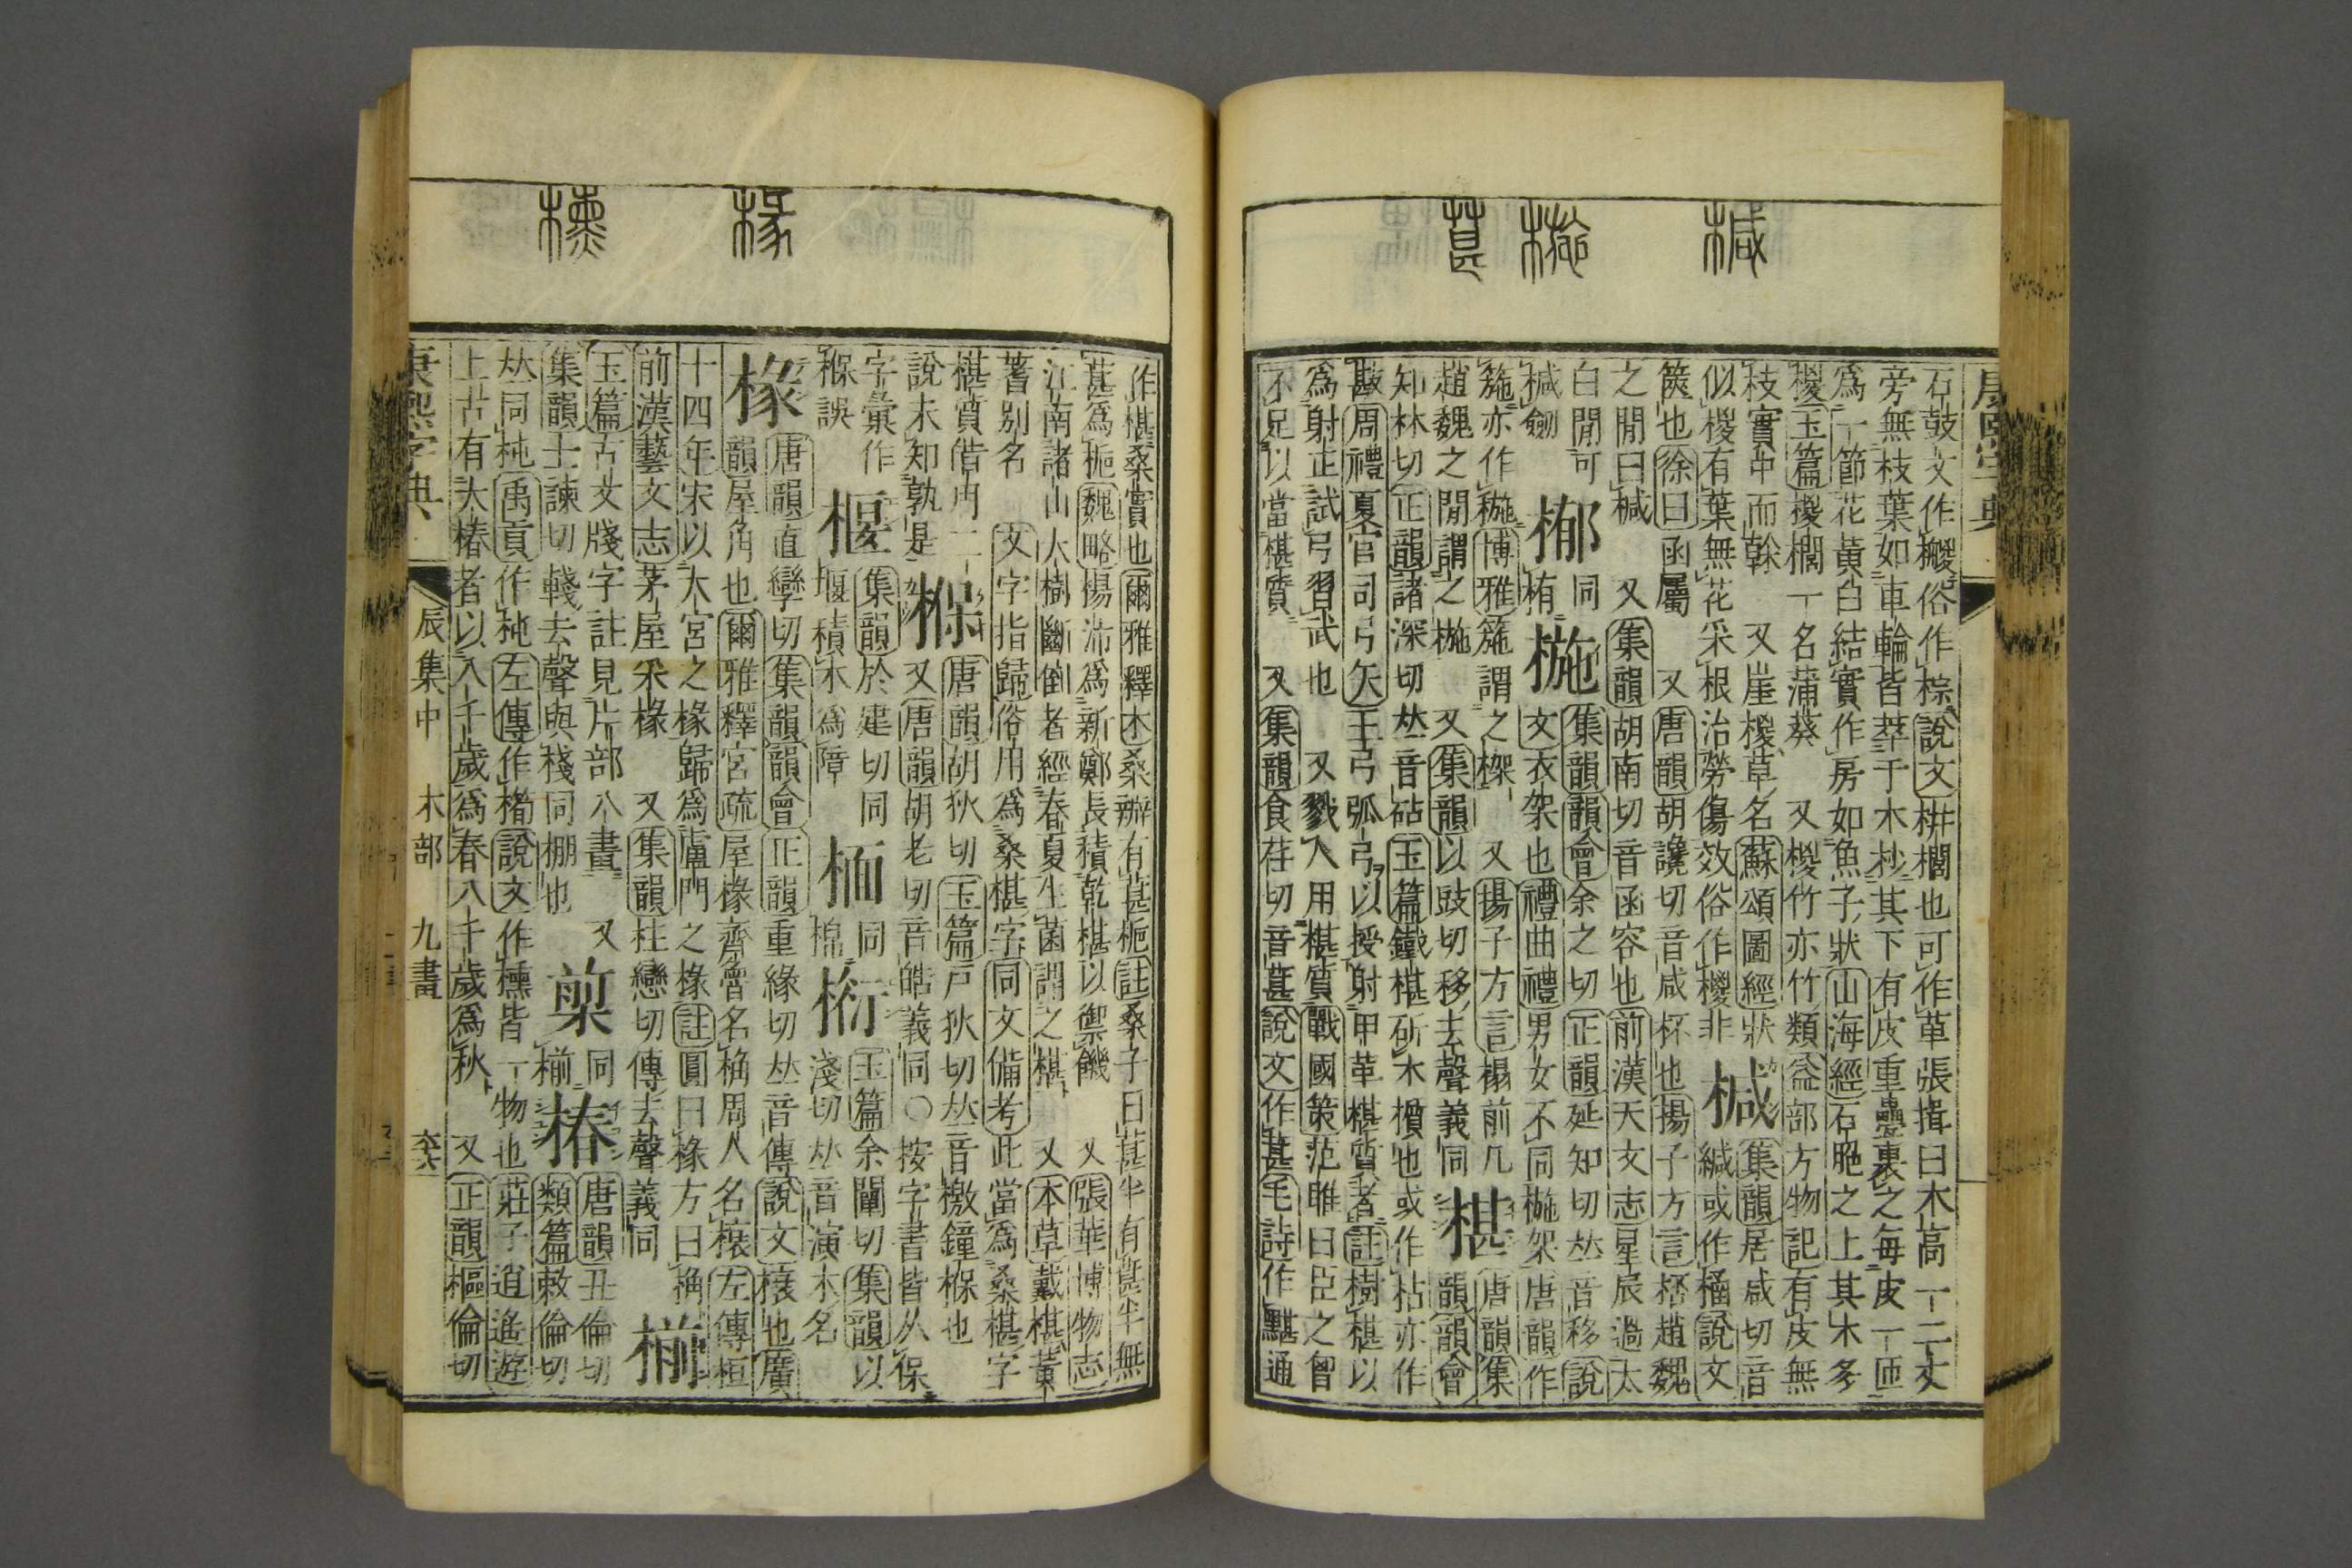 椷 椸 葚
康熙字典
石鼓文作椶俗作棕說文栟櫚也可作萆張揖曰木高一二丈
旁無枝葉如車輪皆萃于木杪其下有皮重疊裹之每皮一匝
爲一節花黃白結實作房如魚子狀山海經石脃之上其木多
椶玉篇椶櫚一名蒲葵 又椶竹亦竹類益部方物記有皮無
枝實中而榦 又崖椶草名蘇頌圖經狀
似椶有葉無花采根治勞傷效俗作㯶非
椷
集韻居咸切音
緘或作㮂說文
篋也徐曰函屬 又唐韻胡讒切音咸杯也揚子方言桮趙魏
之閒曰椷 又集韻胡南切音函容也前漢天文志星辰過太
白閒可
椷劒
㮋
同
栯
椸
集韻韻會余之切正韻延知切𠀤音移說
文衣架也禮曲禮男女不同椸架唐韻作
箷亦作䄬博雅箷謂之榺 又揚子方言榻前几
趙魏之閒謂之椸 又集韻以豉切移去聲義同
椹
唐韻集
韻韻會
知林切正韻諸深切𠀤音砧玉篇鐵椹斫木櫍也或作枮亦作
㪛周禮夏官司弓矢王弓弧弓以授射甲革椹質者註樹椹以
爲射正試弓習武也 又戮人用椹質戰國策范雎曰臣之曾
不足以當椹質 又集韻食荏切音葚說文作葚毛詩作黮通
椽 櫄
作椹桑實也爾雅釋木桑辨有葚梔註桑子曰葚半有葚半無
葚爲梔魏略楊沛爲新鄭長積乾椹以禦饑 又張華博物志
江南諸山大樹斷倒者經春夏生菌謂之椹 又本草戴椹黃
蓍別名 又字指歸俗用爲桑椹字同文備考此當爲桑椹字
椹質借肉二
說未知孰是
楺
唐韻胡狄切玉篇戸狄切𠀤音檄鐘楺也
又唐韻胡老切音皓義同○按字書皆从保
字彙作
楺誤
椻
集韻於建切同
堰積木爲障
㮌
同
棉
椼
玉篇余闡切集韻以
淺切𠀤音演木名
椽
唐韻直攣切集韻韻會正韻重緣切𠀤音傳說文榱也廣
韻屋角也爾雅釋宮疏屋椽齊魯名桷周人名榱左傳桓
十四年宋以大宮之椽歸爲盧門之椽註圓曰椽方曰桷
前漢藝文志茅屋采椽 又集韻柱戀切傳去聲義同
椾
玉篇古文牋字註見片部八畫 又
集韻士諫切轏去聲與棧同棚也
㮍
同
椾
椿
唐韻丑倫切
類篇敕倫切
𠀤同杶禹貢作杶左傳作橁說文作櫄皆一物也莊子逍遙遊
上古有大椿者以八千歲爲春八千歲爲秋 又正韻樞倫切
康熙字典 辰集中 木部 九畫